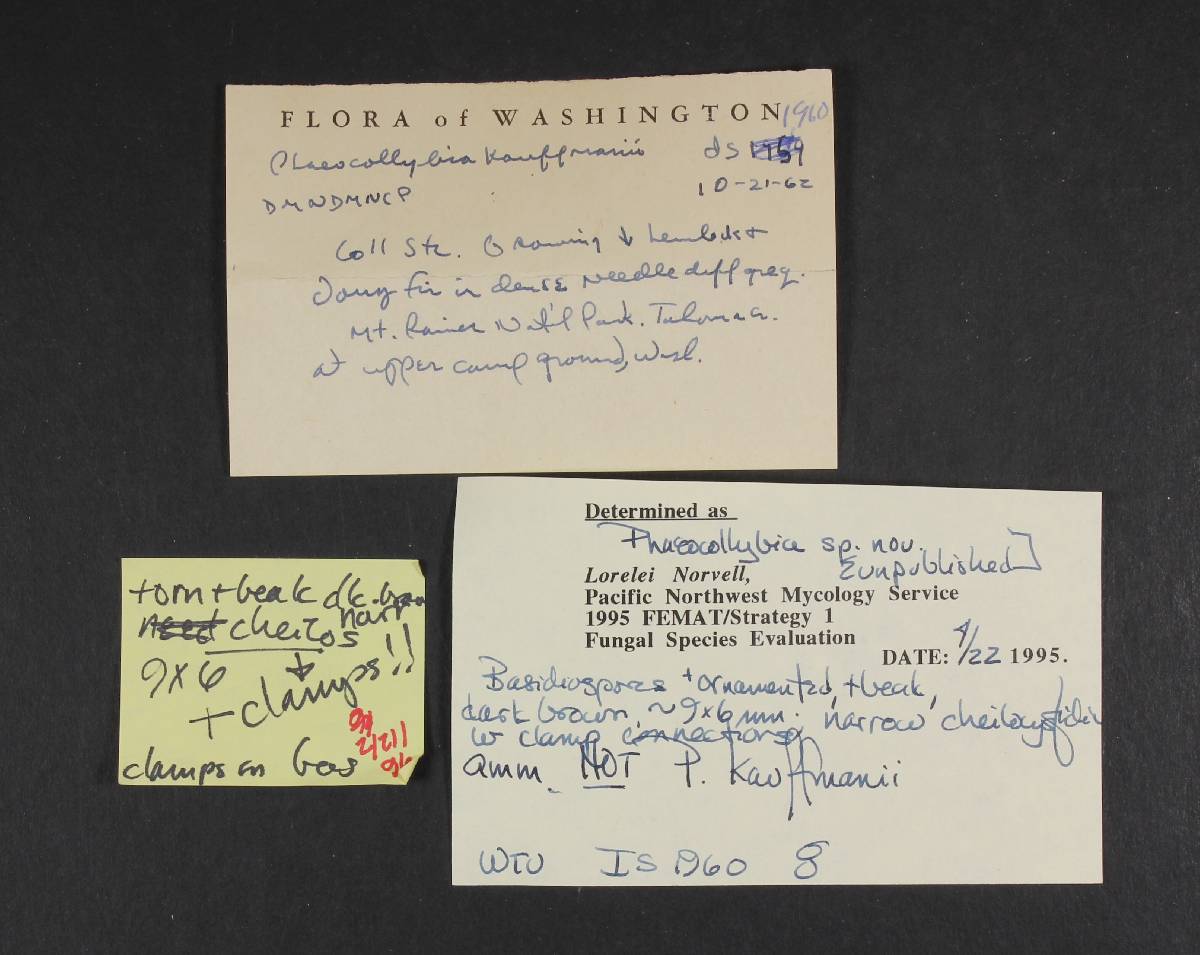 FLORA of WASHINGTON 1960
Phaeocollybia Kauffmanii dS
DMNDMNCP 10-21-62
Coll Stz. Growing ↓ hemlock +
Doug fir in dense needle duff greg.
Mt. Rainier Nat'l Park. Tahoma Cr.
at upper camp ground, Wash.
Determined as
Phaeocollybia sp. nov.
Lorelei Norvell, unpublished]
Pacific Northwest Mycology Service
1995 FEMAT/Strategy 1
Fungal Species Evaluation
DATE: 4/22 1995.
Basidiospores +ornamented, +beak,
dark brown, ~9x6 mm. narrow cheilocystidia
w clamp connections
Amm. NOT P. Kauffmanii
WTU IS 1960 8
+orn+beak dk.brn
cheilos narr
9x6 ↓
+clamps!!
clamps on bas